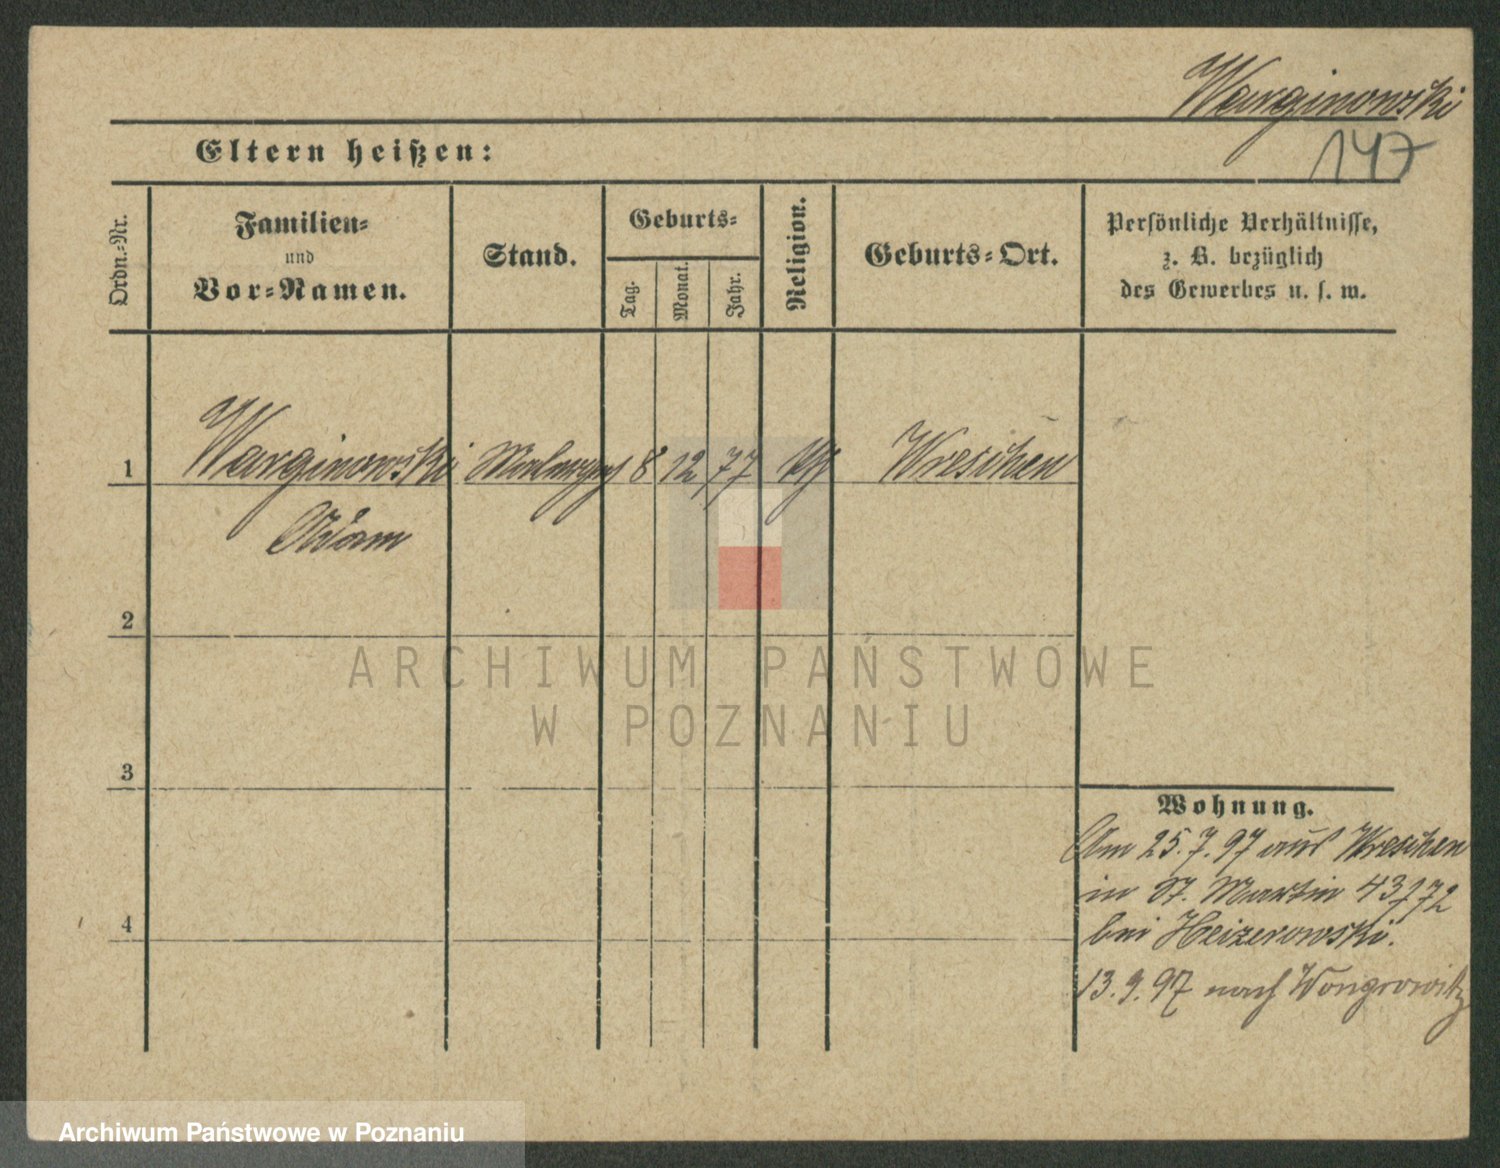 Warginowski
147
Eltern heißen:
Ordn.-Nr.
Familien-
und
Vor-Namen.
Stand.
Geburts-
Tag.
Monat.
Jahr.
Religion.
Geburts-Ort.
Persönliche Verhältnisse,
z. B. bezüglich
des Gewerbes u. s. w.
1 Warginowski 8 12 77 Wreschen
Adam
2
3
4
Wohnung.
Am 25.7.97 aus Wreschen
in St. Martin 43/72
bei Heizerowski.
13.9.97 nach Wongrowitz
ARCHIWUM PAŃSTWOWE
W POZNANIU
Archiwum Państwowe w Poznaniu